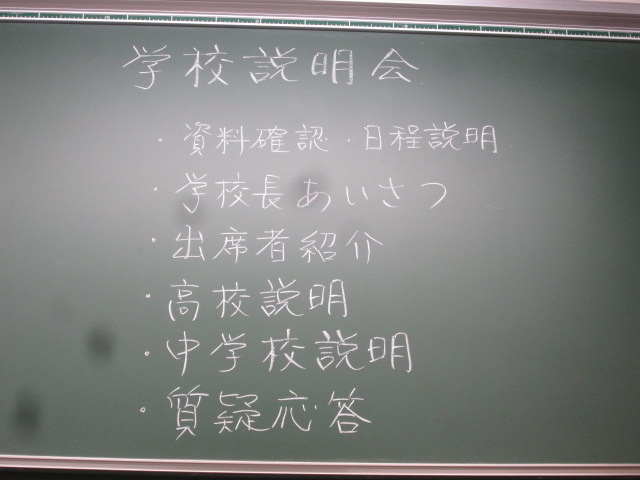 学校説明会
・資料確認・日程説明
・学校長あいさつ
・出席者紹介
・高校説明
・中学校説明
・質疑応答